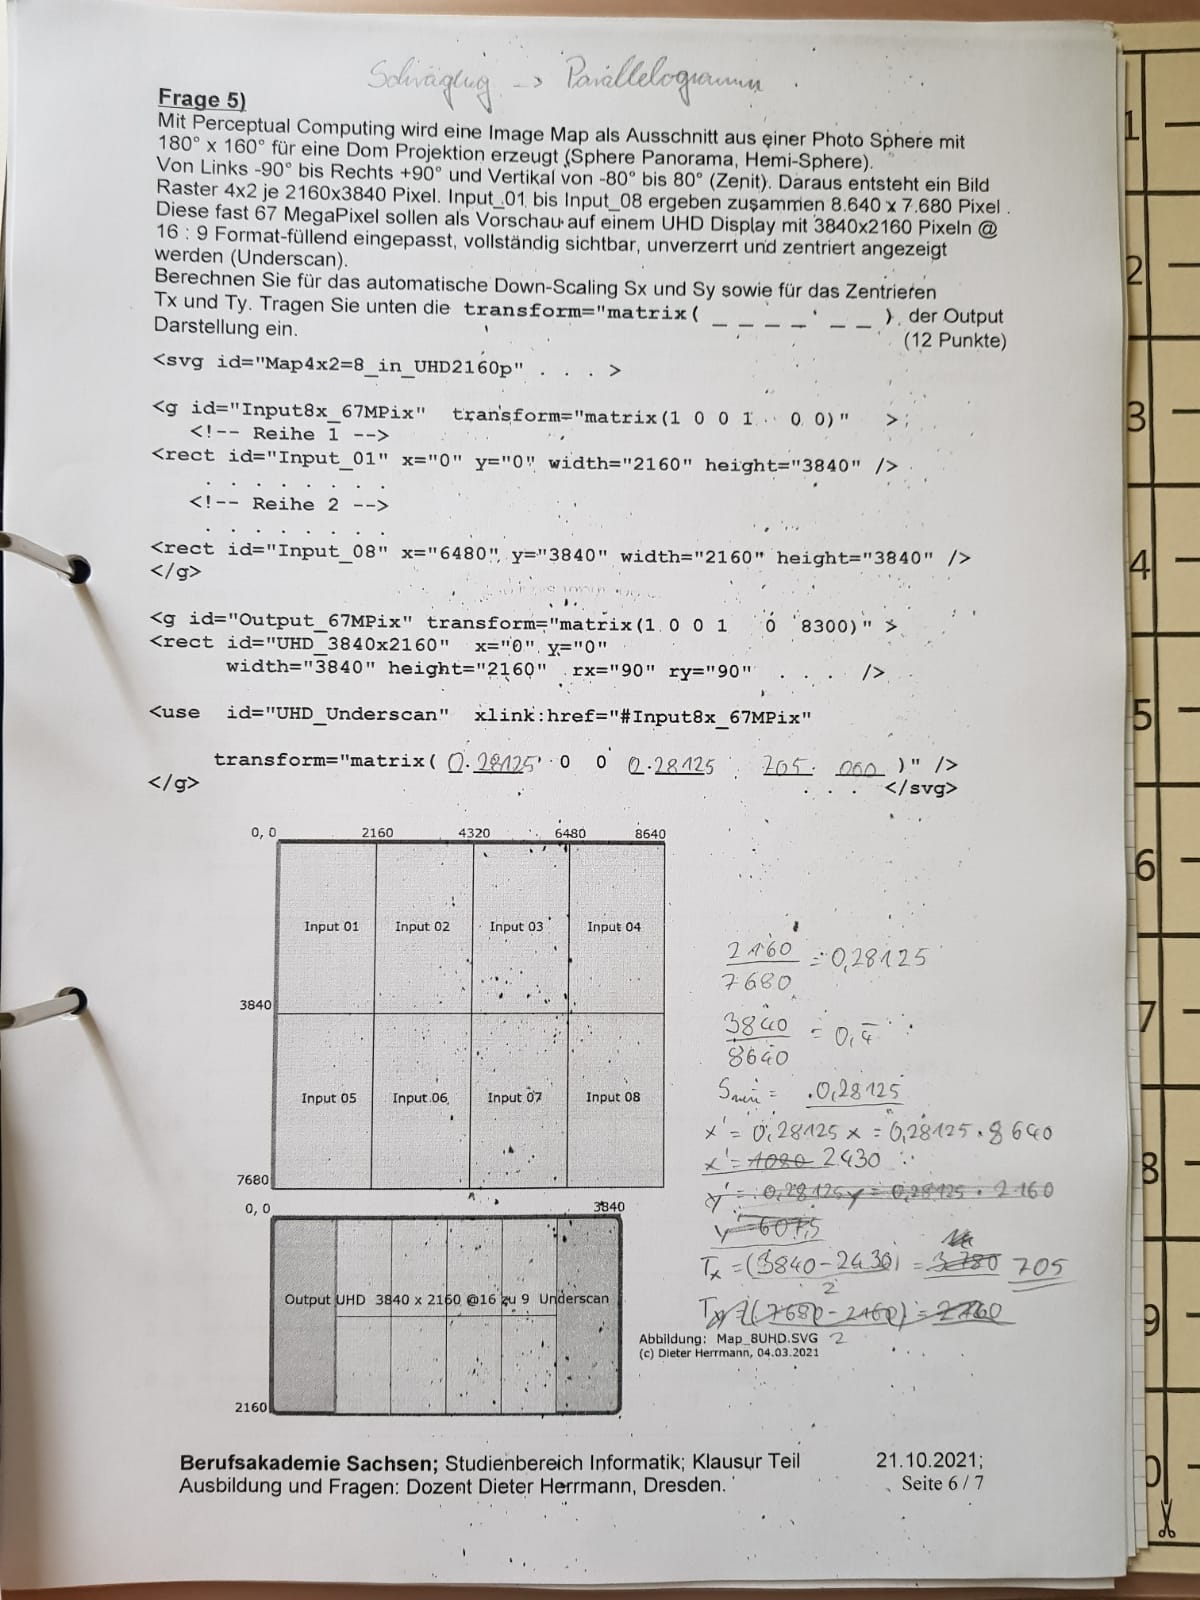 Schrägflug -> Parallelogramm
Frage 5)
Mit Perceptual Computing wird eine Image Map als Ausschnitt aus einer Photo Sphere mit
180° x 160° für eine Dom Projektion erzeugt (Sphere Panorama, Hemi-Sphere).
Von Links -90° bis Rechts +90° und Vertikal von -80° bis 80° (Zenit). Daraus entsteht ein Bild
Raster 4x2 je 2160x3840 Pixel. Input_01 bis Input_08 ergeben zusammen 8.640 x 7.680 Pixel.
Diese fast 67 MegaPixel sollen als Vorschau auf einem UHD Display mit 3840x2160 Pixeln @
16 : 9 Format-füllend eingepasst, vollständig sichtbar, unverzerrt und zentriert angezeigt
werden (Underscan).
Berechnen Sie für das automatische Down-Scaling Sx und Sy sowie für das Zentrieren
Tx und Ty. Tragen Sie unten die transform="matrix( _ _ _ _ _ _ ) der Output
Darstellung ein. (12 Punkte)
<svg id="Map4x2=8_in_UHD2160p" . . . >
<g id="Input8x_67MPix" transform="matrix(1 0 0 1 0 0)" >
<!-- Reihe 1 -->
<rect id="Input_01" x="0" y="0" width="2160" height="3840" />
. . . . . . .
<!-- Reihe 2 -->
. . . . . . .
<rect id="Input_08" x="6480" y="3840" width="2160" height="3840" />
</g>
<g id="Output_67MPix" transform="matrix(1 0 0 1 0 8300)" >
<rect id="UHD_3840x2160" x="0" y="0"
width="3840" height="2160" rx="90" ry="90" . . . />
<use id="UHD_Underscan" xlink:href="#Input8x_67MPix"
transform="matrix( 0.28125 0 0 0.28125 705. 000 )" />
</g> . . . </svg>
0, 0 2160 4320 6480 8640
Input 01 Input 02 Input 03 Input 04
3840
Input 05 Input 06 Input 07 Input 08
7680
0, 0 3840
Output UHD 3840 x 2160 @16 zu 9 Underscan
2160
2160
7680 = 0,28125
3840
8640 = 0,4
Smin = 0,28125
x' = 0,28125 x = 0,28125 . 8640
x' = 1080 2430
y' = 0,28125 y = 0,28125 . 2160
y = 607,5
Tx = (3840 - 2430) = 3780 705
2
Ty = (7680 - 2160) = 2760
2
Abbildung: Map_8UHD.SVG
(c) Dieter Herrmann, 04.03.2021
Berufsakademie Sachsen; Studienbereich Informatik; Klausur Teil 21.10.2021;
Ausbildung und Fragen: Dozent Dieter Herrmann, Dresden. Seite 6 / 7
1
2
3
4
5
6
7
8
9
0